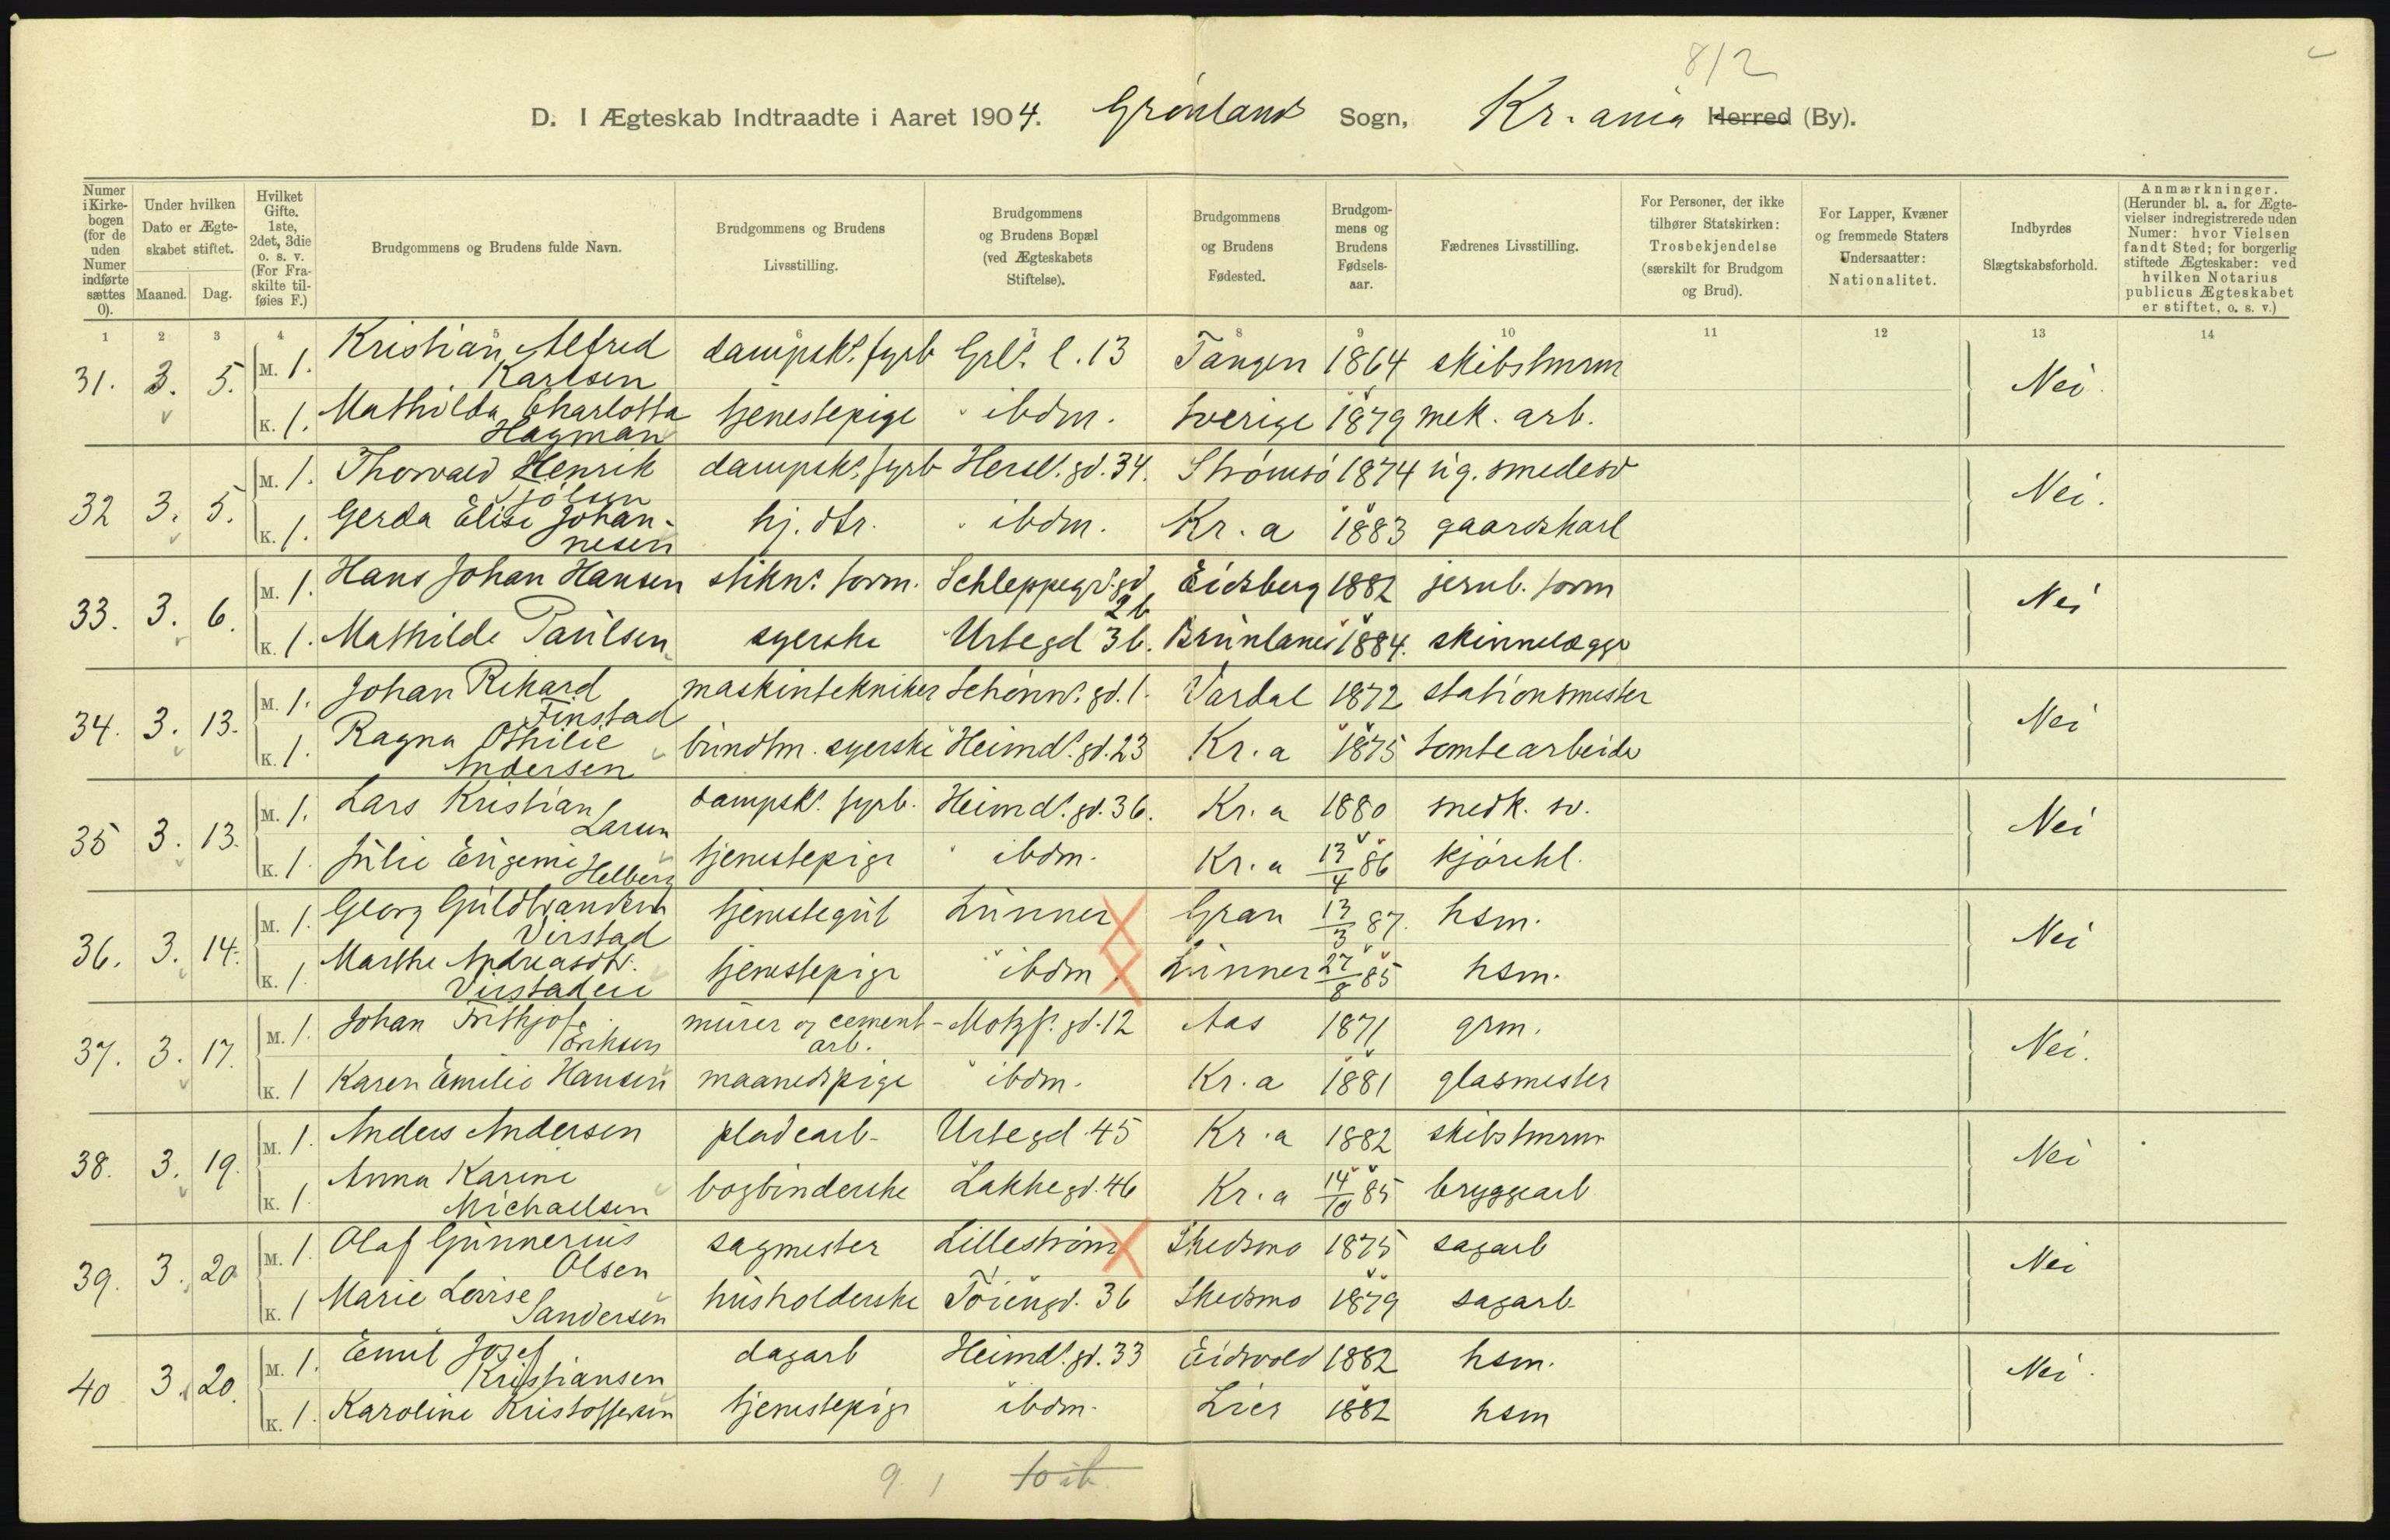 8/2
D. I Ægteskab Indtraadte i Aaret 1904. Grønland Sogn, Kr.ania Herred (By).
Numer i Kirkebogen (for de uden Numer indførte sættes 0).
Under hvilken Dato er Ægteskabet stiftet.
Maaned. Dag.
Hvilket Gifte. 1ste, 2det, 3die o. s. v. (For Fraskilte tilføies F.)
Brudgommens og Brudens fulde Navn.
Brudgommens og Brudens Livsstilling.
Brudgommens og Brudens Bopæl (ved Ægteskabets Stiftelse).
Brudgommens og Brudens Fødested.
Brudgommens og Brudens Fødselsaar.
Fædrenes Livsstilling.
For Personer, der ikke tilhører Statskirken: Trosbekjendelse (særskilt for Brudgom og Brud).
For Lapper, Kvæner og fremmede Staters Undersaatter: Nationalitet.
Indbyrdes Slægtskabsforhold.
Anmærkninger. (Herunder bl. a. for Ægtevielser indregistrerede uden Numer: hvor Vielsen fandt Sted; for borgerlig stiftede Ægteskaber: ved hvilken Notarius publicus Ægteskabet er stiftet, o. s. v.)
1 2 3 4 5 6 7 8 9 10 11 12 13 14
31. 3. 5. M. 1. Kristian Alfred Karlsen dampsks. fyrb Grls. l. 13 Tangen 1864 skibstmrm Nei.
K. 1. Mathilda Charlotta Hagman tjenestepige ibdm. Sverige 1879 mek. arb.
32 3. 5. M. 1. Thorvald Henrik dampsks. fyrb Hersl. gd. 34. Strømsø 1874 ug. smedesv Nei.
K. 1. Gerda Elise Johannesen hj. dtr. ibdm. Kr.a 1883 gaardskarl
33. 3. 6. M. 1. Hans Johan Hansen stikns. form. Schleppegrs. gd 2b Eidsberg 1882 jernb. form Nei
K. 1. Mathilde Paulsen syerske Urtegd 3b. Brunlanes 1884. skinnelægger
34. 3. 13. M. 1. Johan Rikard Finstad maskintekniker Schønns. gd. 1. Vardal 1872 stationsmester Nei
K. 1. Ragna Othilie Andersen bundtm. syerske Heimds. gd. 23 Kr.a 1875 tomtearbeider
35 3. 13. M. 1. Lars Kristian Larsen dampsks. fyrb. Heimds. gd. 36. Kr.a 1880 snedk. sv. Nei
K. 1. Julie Eugenie Helberg tjenestepige ibdm. Kr.a 13/4 86 kjørekl.
36. 3. 14. M. 1. Georg Guldbrandsen Virstad tjenestegut Lunner Gran 13/3 87. hsm. Nei
K. 1. Marthe Andreasdtr. Virstadeie tjenestepige ibdm Lunner 27/8 85 hsm.
37. 3. 17. M. 1. Johan Frithjof Eriksen murer og cementarb. Motzf. gd. 12 Aas 1871 grm. Nei.
K. 1 Karen Emilie Hansen maanedspige ibdm. Kr.a 1881 glasmester
38. 3. 19. M. 1. Anders Andersen pladearb. Urtegd. 45 Kr.a 1882 skibstmrm Nei
K. 1. Anna Karine Michaelsen bogbinderske Lakkegd. 46 Kr.a 14/10 85 bryggearb
39. 3. 20 M. 1. Olaf Gunnerius Olsen sagmester Lillestrøm Skedsmo 1875 sagarb Nei
K. 1 Marie Lovise Sandersen husholderske Tøiengd. 36 Skedsmo 1879 sagarb.
40 3. 20. M. 1. Emil Josef Kristiansen dagarb Heimds. gd. 33 Eidsvold 1882 hsm. Nei.
K. 1. Karoline Kristoffersen tjenestepige ibdm. Lier 1882 hsm
9. 1 10 ib